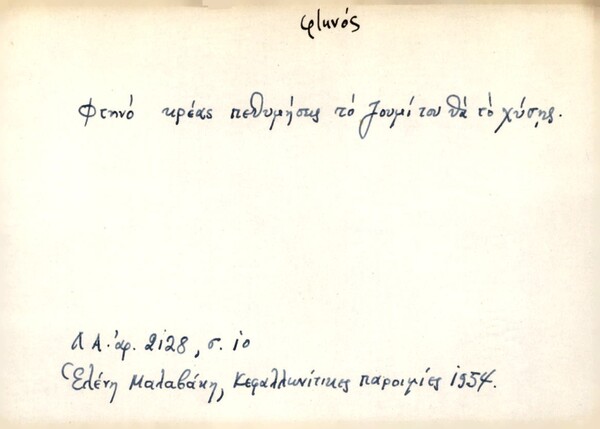 φτηνός
Φτηνό κρέας πεθυμήσης τό ζουμί του θά τό χύσης.
Λ Α. ἀρ. 2128, σ. 10
Ἑλένη Μαλαβάκη, Κεφαλλωνίτικες παροιμίες 1954.